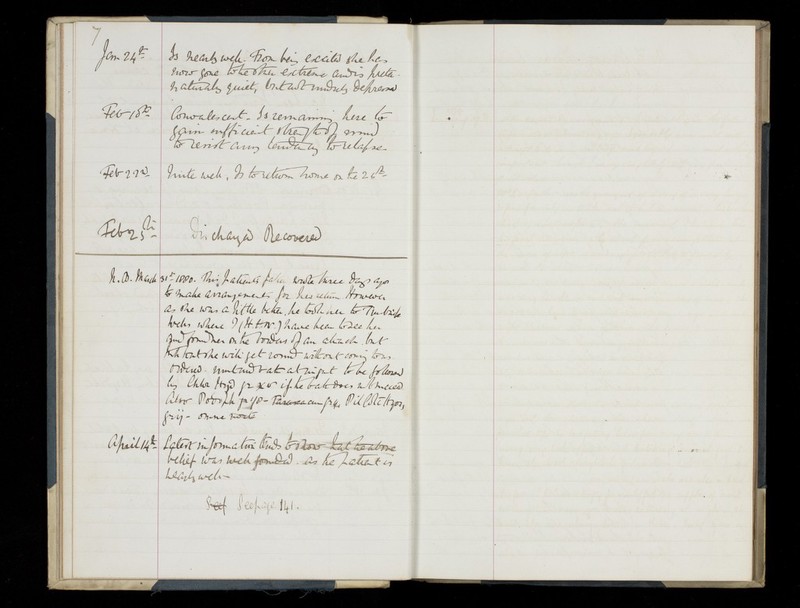 7
Jan 24th Is nearly well. From being excited she has
now gone to the other extreme and is preter-
naturally quiet, but not unduly depressed
Feb 10th Convalescent. Is remaining here to
gain sufficient strength of mind
to resist any tendency to relapse
Feb 22nd Quite well. Is to return home on the 25th
Feb 25th Discharged Recovered
N.B. March 31st 1880. This patient's wrote three days ago
to make arrangements for her return However
as she was a little better, he took her to Tunbridge
Wells where I (H.F.W.) have been to see her
and found her on the borders of an attack but
think that she will get round without coming to us.
Ordered bath at night to be followed
by Chlor Hyd gr xv if the bath does not succeed
Also Podoph Pil
omne nocte
April 14th Latest information tends to show that the above
belief was well founded as the patient is
nearly well
See See page 141.